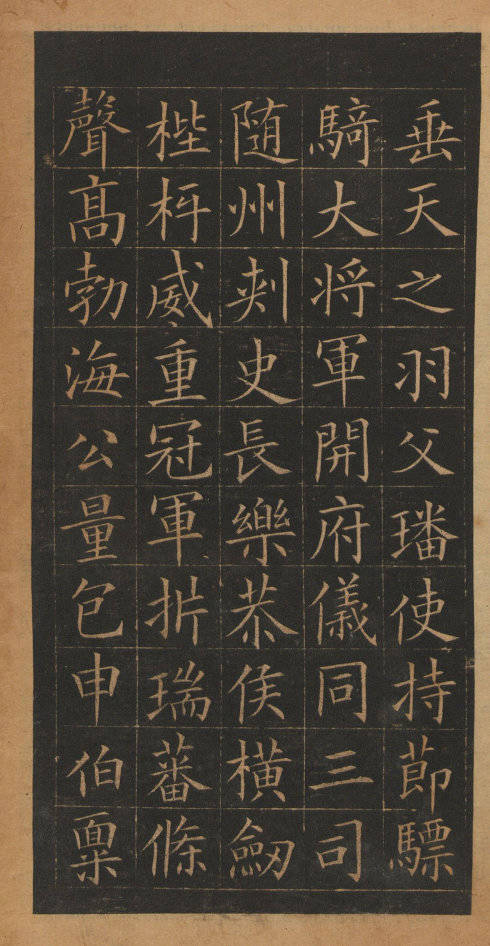 垂天之羽父璠使持節驃
騎大将軍開府儀同三司
随州刾史長樂恭侯横劒
梐枑威重冠軍析瑞蕃條
聲髙勃海公量包申伯稟